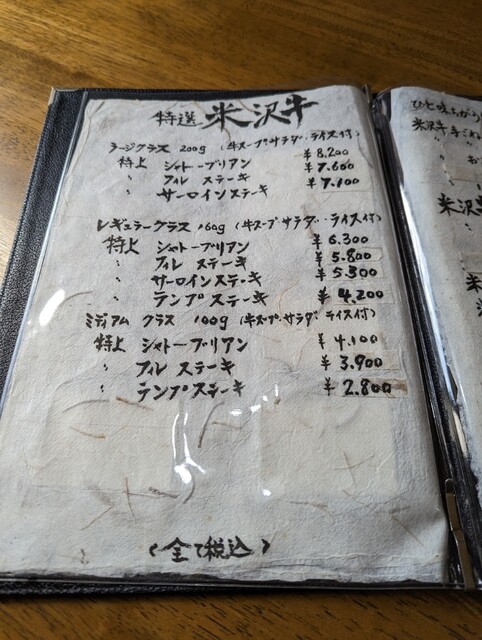 特選 米沢牛
ラージクラス 200g (牛スープサラダ・ライス付)
特上 シャトーブリアン ¥8.200
〃 フィレ ステーキ ¥7.600
〃 サーロインステーキ ¥7.100
レギュラークラス 160g (牛スープサラダ・ライス付)
特上 シャトーブリアン ¥6.300
〃 フィレ ステーキ ¥5.800
〃 サーロインステーキ ¥5.300
〃 テンプステーキ ¥4.200
ミディアム クラス 100g (牛スープサラダ・ライス付)
特上 シャトーブリアン ¥4.100
〃 フィレ ステーキ ¥3.900
〃 テンプステーキ ¥2.800
(全て税込)
米沢牛
米沢